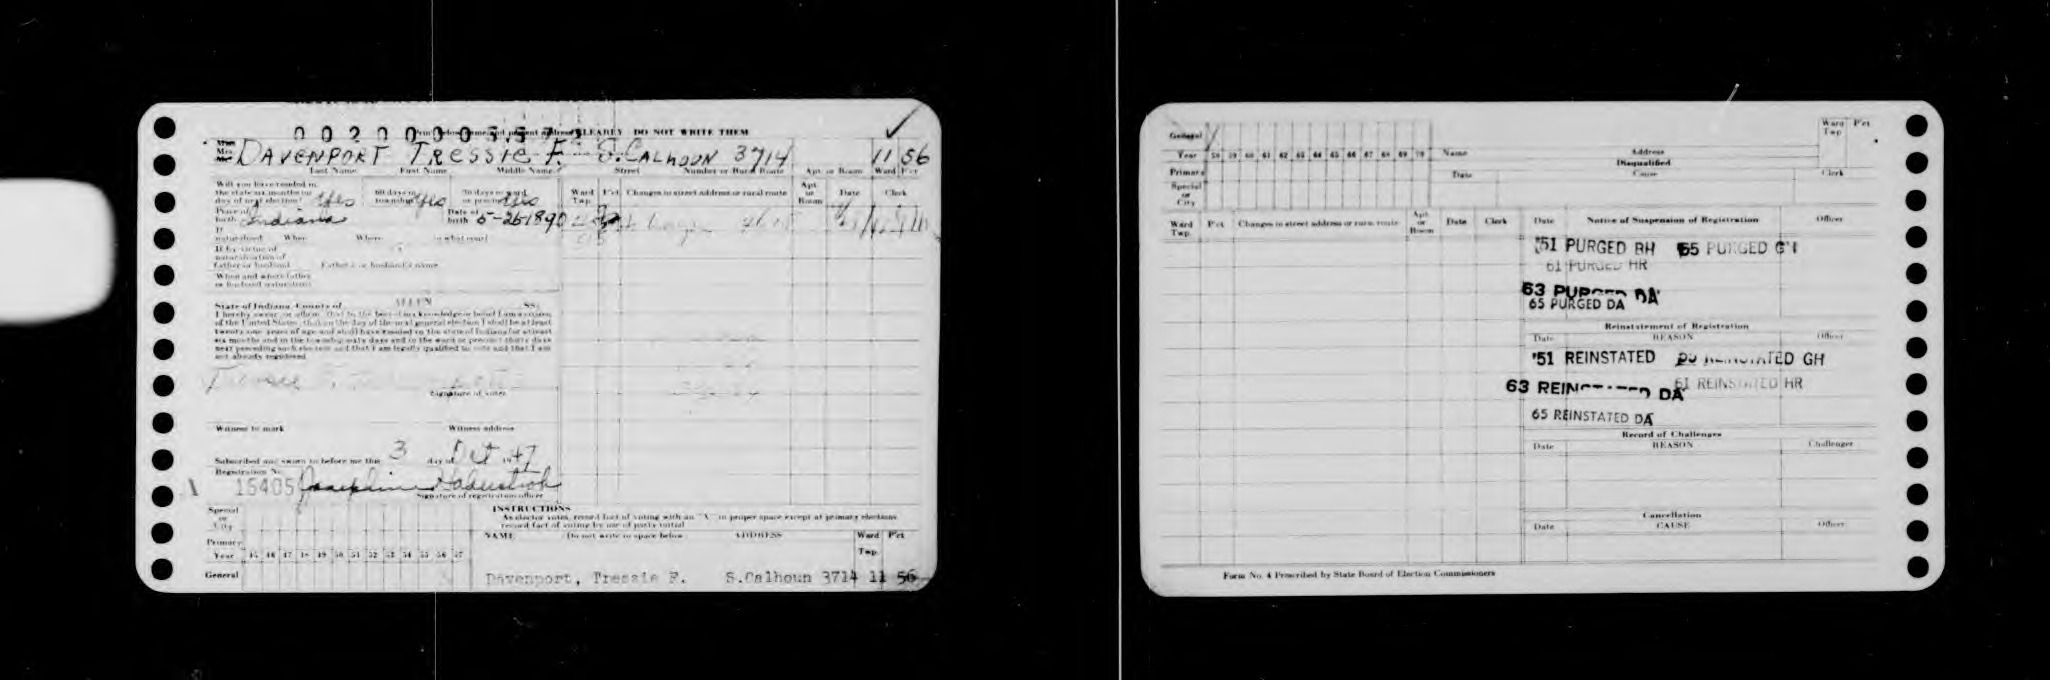 CLEARLY DO NOT WRITE THEM
DAVENPORT TRESSIE F. S. CALHOUN 3714 11 56
Last Name First Name Middle Name Street Number or Rural Route Apt. or Room Ward Pct
Will you have resided in
the state six months on
day of next election? Yes 60 days in township Yes 30 days in ward or precinct Yes
Ward Twp. Pct. Changes in street address or rural route Apt. or Room Date Clerk
Place of birth Indiana Date of birth 5-26-1890
If naturalized When Where in what court
If by virtue of
naturalization of
father or husband Father's or husband's name
When and where father
or husband naturalized
State of Indiana, County of ALLEN SS:
I hereby swear, or affirm, that to the best of my knowledge or belief I am a citizen
of the United States; that on the day of the next general election I shall be at least
twenty-one years of age and shall have resided in the state of Indiana for at least
six months and in the township sixty days and in the ward or precinct thirty days
next preceding such election and that I am legally qualified to vote and that I am
not already registered.
Signature of voter
Witness to mark Witness address
Subscribed and sworn to before me this 3 day of Oct 1947
Registration No.
15405 Josephine
Signature of registration officer
INSTRUCTIONS
As elector votes, record fact of voting with an "X" in proper space except at primary elections
record fact of voting by use of party initial
Special or City
Primary
Year 45 46 47 48 49 50 51 52 53 54 55 56 57
General
NAME Do not write in space below ADDRESS Ward Twp. Pct
Davenport, Tressie F. S.Calhoun 3714 11 56
General
Year 58 59 60 61 62 63 64 65 66 67 68 69 70
Primary
Special or City
Name Address Ward Twp Pct
Disqualified
Date Cause Clerk
Ward Twp. Pct Changes in street address or rural route Apt. or Room Date Clerk
Date Notice of Suspension of Registration Officer
'51 PURGED RH 55 PURGED GH
61 PURGED HR
63 PURGED DA
65 PURGED DA
Reinstatement of Registration
Date REASON Officer
'51 REINSTATED REINSTATED GH
63 REINSTATED DA 61 REINSTATED HR
65 REINSTATED DA
Record of Challenges
Date REASON Challenger
Cancellation
Date CAUSE Officer
Form No. 4 Prescribed by State Board of Election Commissioners